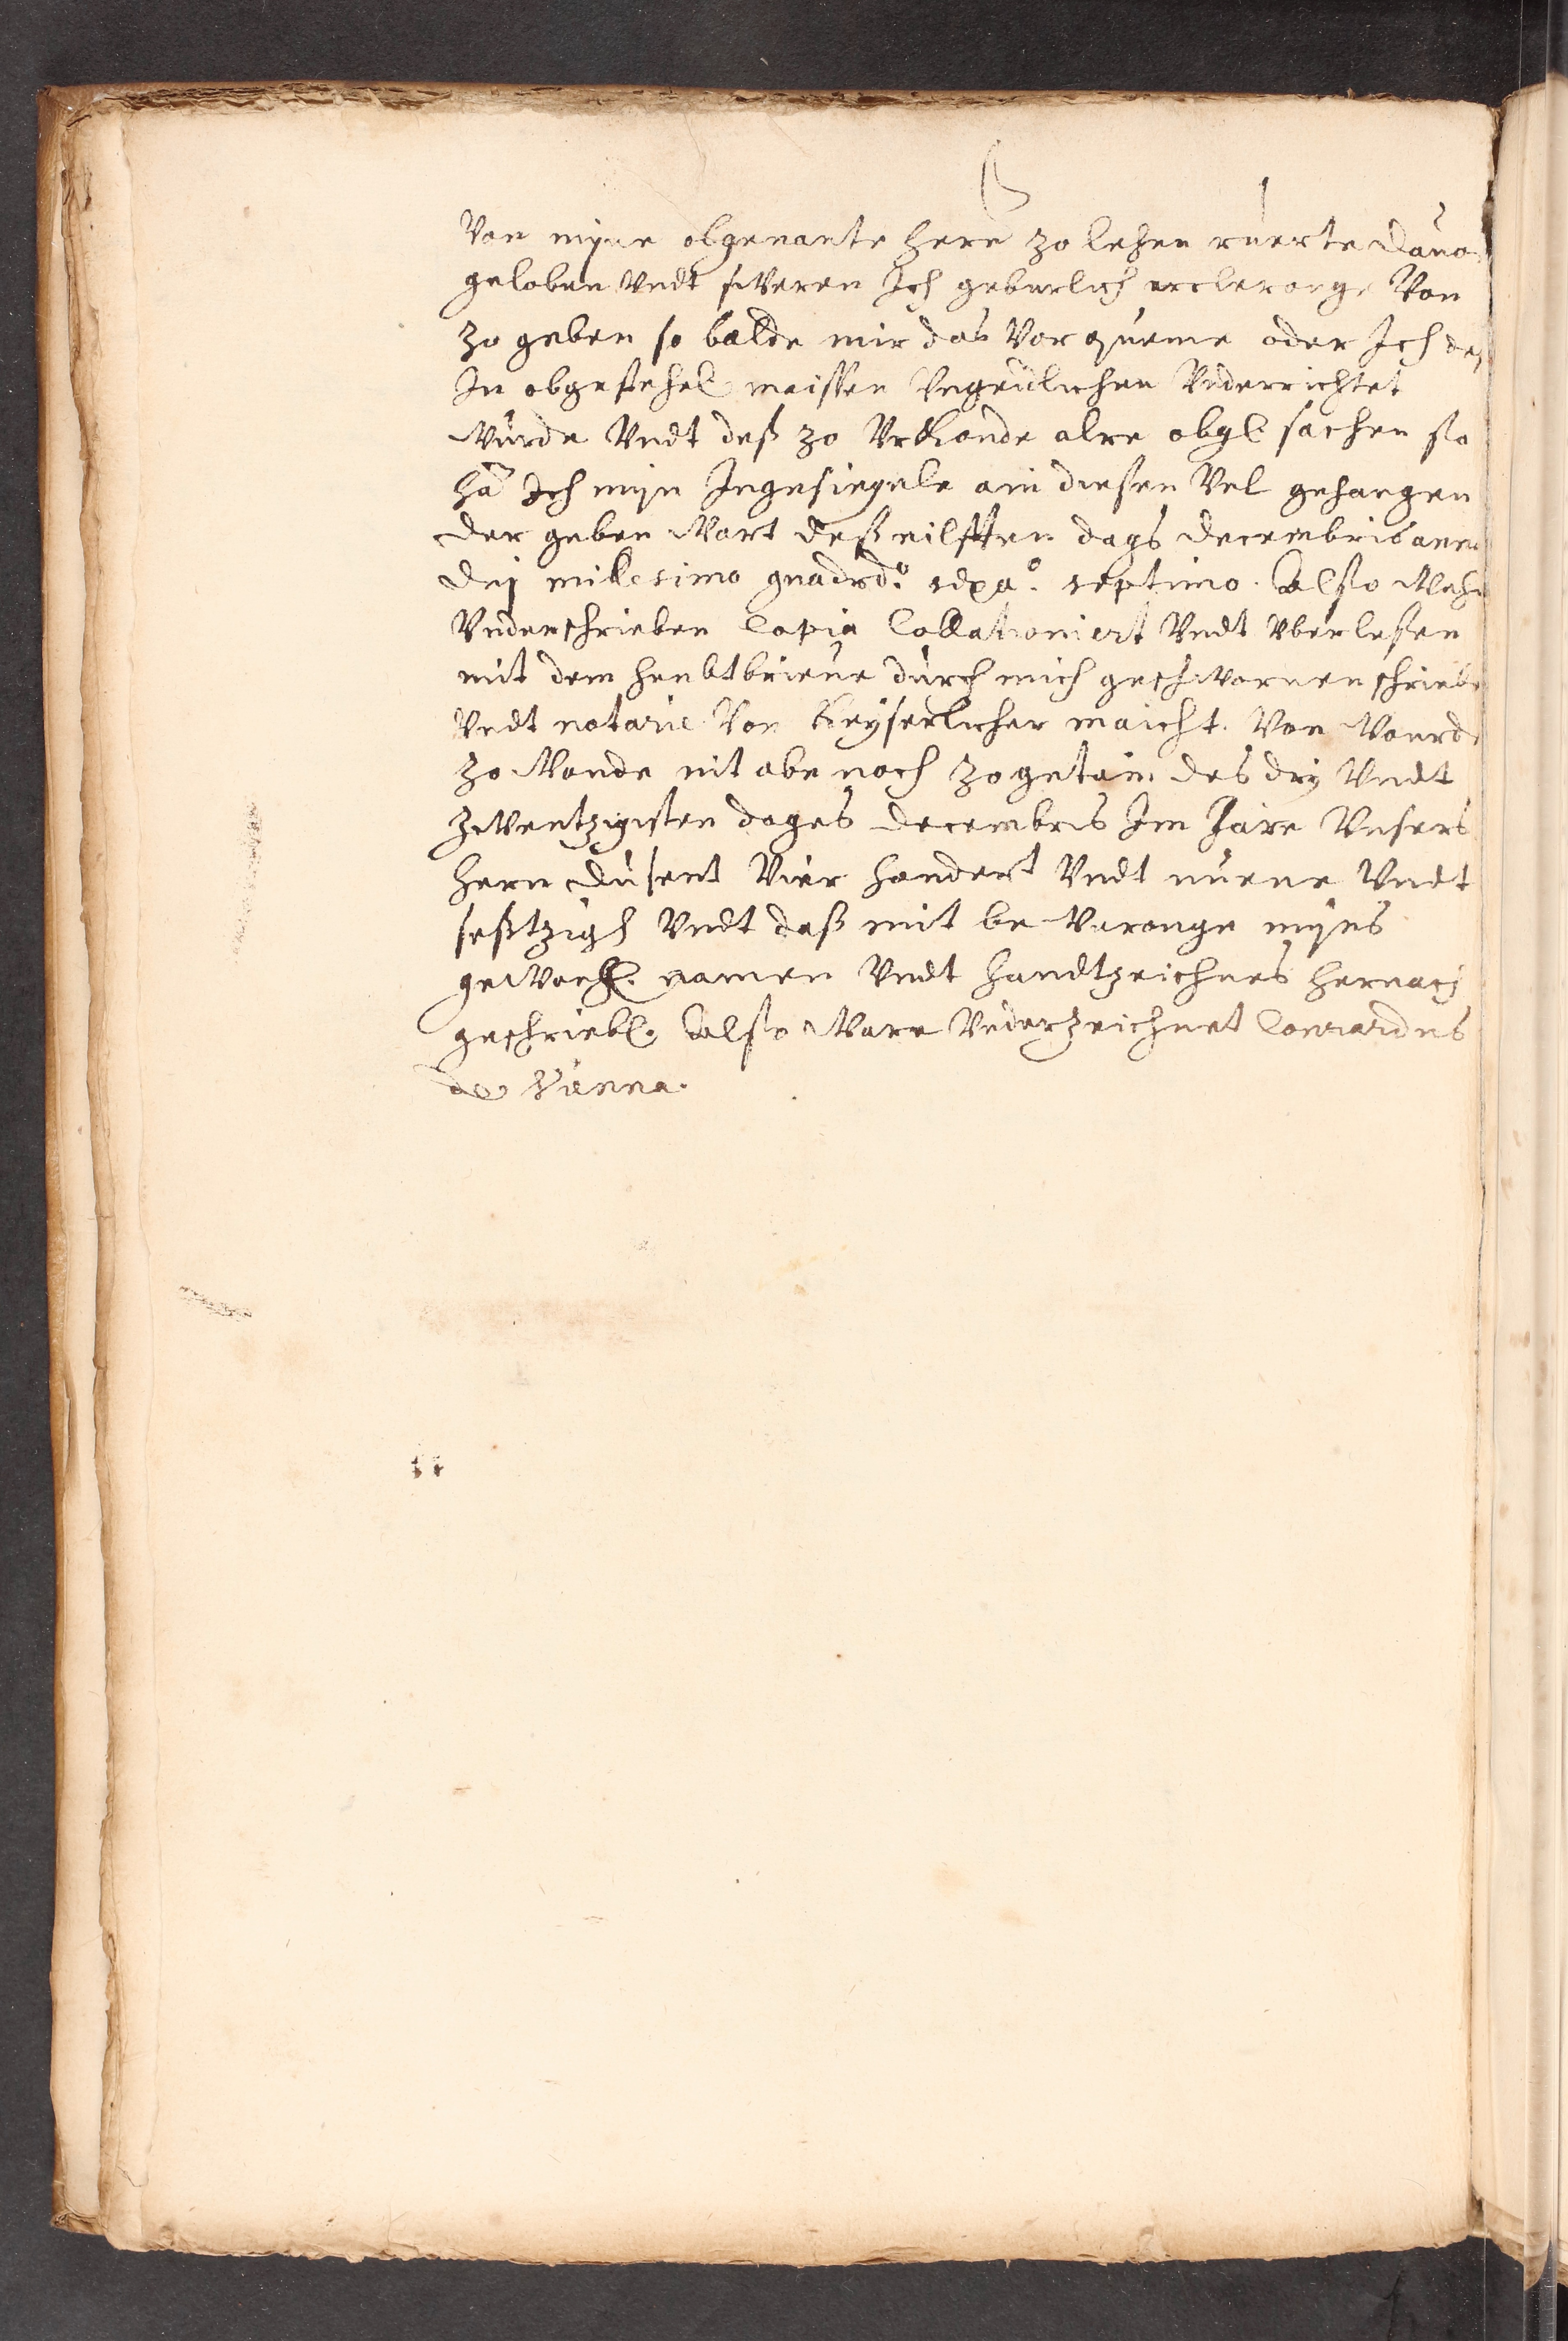 Von myne obgenante here zo lehen ruerte dauo
geloben Vndt sweren Ich geburlich ercleronge Von
zo geben so balde mir das Vorqueme oder Ich deß
In obgesteh maissen Vngeulichen Vnderrichtet
Wurde Vndt deß zo Vrkonde alre obgl sachen so
hā Ich myn Ingesiegele ain diesen Vel gehangen
der geben Wart deß eilfften dags decembris anno
dnj millesimo quadrdo. sexao. septimo. Also
Vnderschrieben Copia Collationiert Vndt Vberlesen
mit dem heubtbrieue durch mich geschwornen schriebe
Vndt notarie Von Keyserlicher maicht. Von Wourde
zo Wonde nit abe noch zogetain des dry Vndt
zwentzigisten dages decembris Im Jare Vnsers
hern dusent Vier hondert Vndt nuene Vndt
seßtzigh Vndt daß mit bewaronge myns
gewonh. namen Vndt handtzeichnes hernach
geschriebl. Also Ware Vnderzeichnet Conrardus
de Vanna.